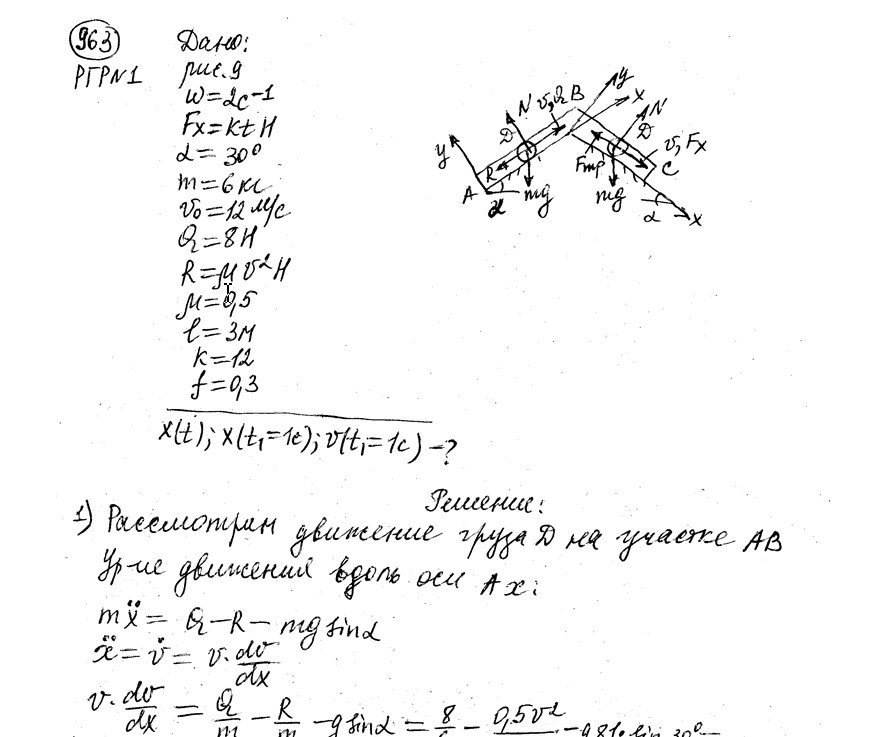 963
Дано:
РГР№1
рис.9
ω=2с⁻¹
Fx=kt Н
α=30°
m=6кг
v₀=12 м/с
Q=8Н
R=μv²Н
μ=0,5
l=3м
k=12
f=0,3
x(t); x(t₁=1с); v(t₁=1с)-?
y x
N v,Q B y D N D v, Fx
R Fтр C
A α mg mg α x
Решение:
1) Рассмотрим движение груза D на участке AB
Ур-ие движения вдоль оси Ax:
mẍ = Q-R-mg sinα
ẍ = v̇ = v·dv/dx
v·dv/dx = Q/m - R/m - g sinα = 8/6 - 0,5v² -9,81·sin 30°